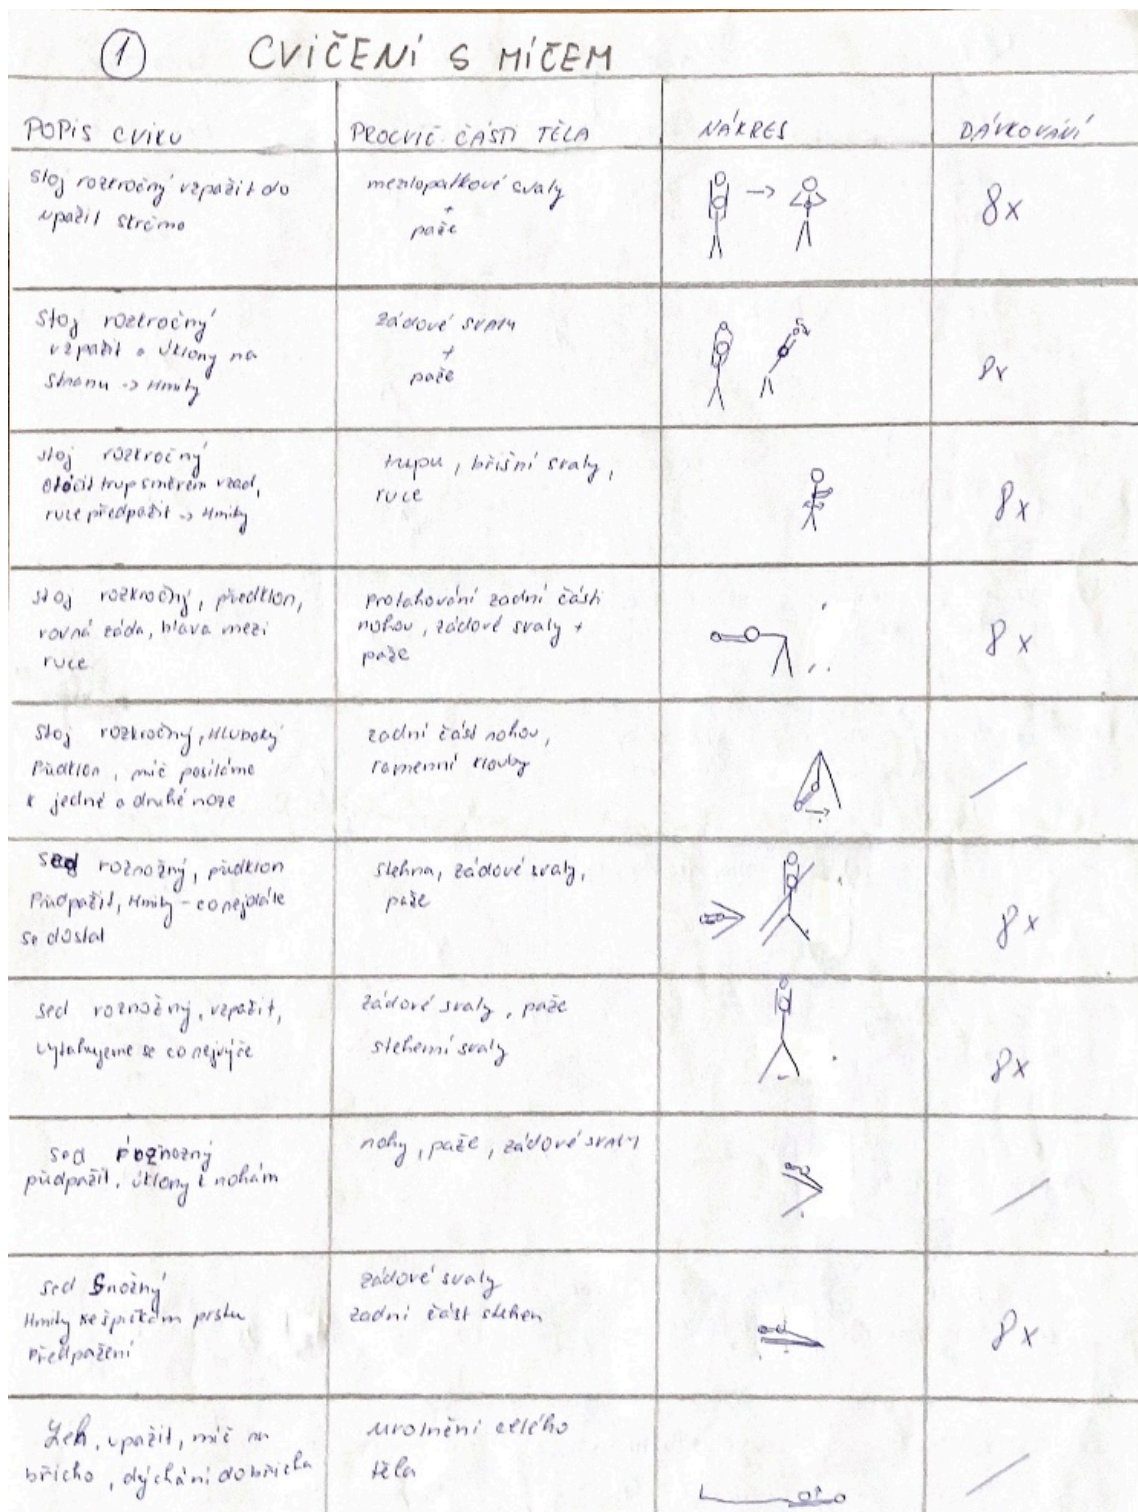 1 CVIČENÍ S MÍČEM
POPIS CVIKU PROCVIČ ČÁSTI TĚLA NÁKRES DÁVKOVÁNÍ
stoj rozkročný vzpažit do
upažit skrčmo
mezilopatkové svaly
+
paže
8x
stoj rozkročný
vzpažit a úklony na
stranu -> Hmity
zádové svaly
+
paže
8x
stoj rozkročný
otočit trup směrem vzad,
ruce předpažit -> Hmity
trupu, břišní svaly,
ruce
8x
stoj rozkročný, předklon,
rovná záda, hlava mezi
ruce
protahování zadní části
nohou, zádové svaly +
paže
8x
stoj rozkročný, HLUBOKÝ
Předklon, míč posíláme
k jedné a druhé noze
zadní část nohou,
ramenní klouby
sed roznožný, předklon
Předpažit, Hmity - co nejdále
se dostat
stehna, zádové svaly,
paže
8x
sed roznožný, vzpažit,
vytahujeme se co nejvýše
zádové svaly, paže
stehenní svaly
8x
sed roznožný
předpažit, úklony k nohám
nohy, paže, zádové svaly
sed snožný
Hmity ke špičkám prstu
Předpažení
zádové svaly
zadní část stehen
8x
Leh, upažit, míč na
břicho, dýchání do břicha
uvolnění celého
těla